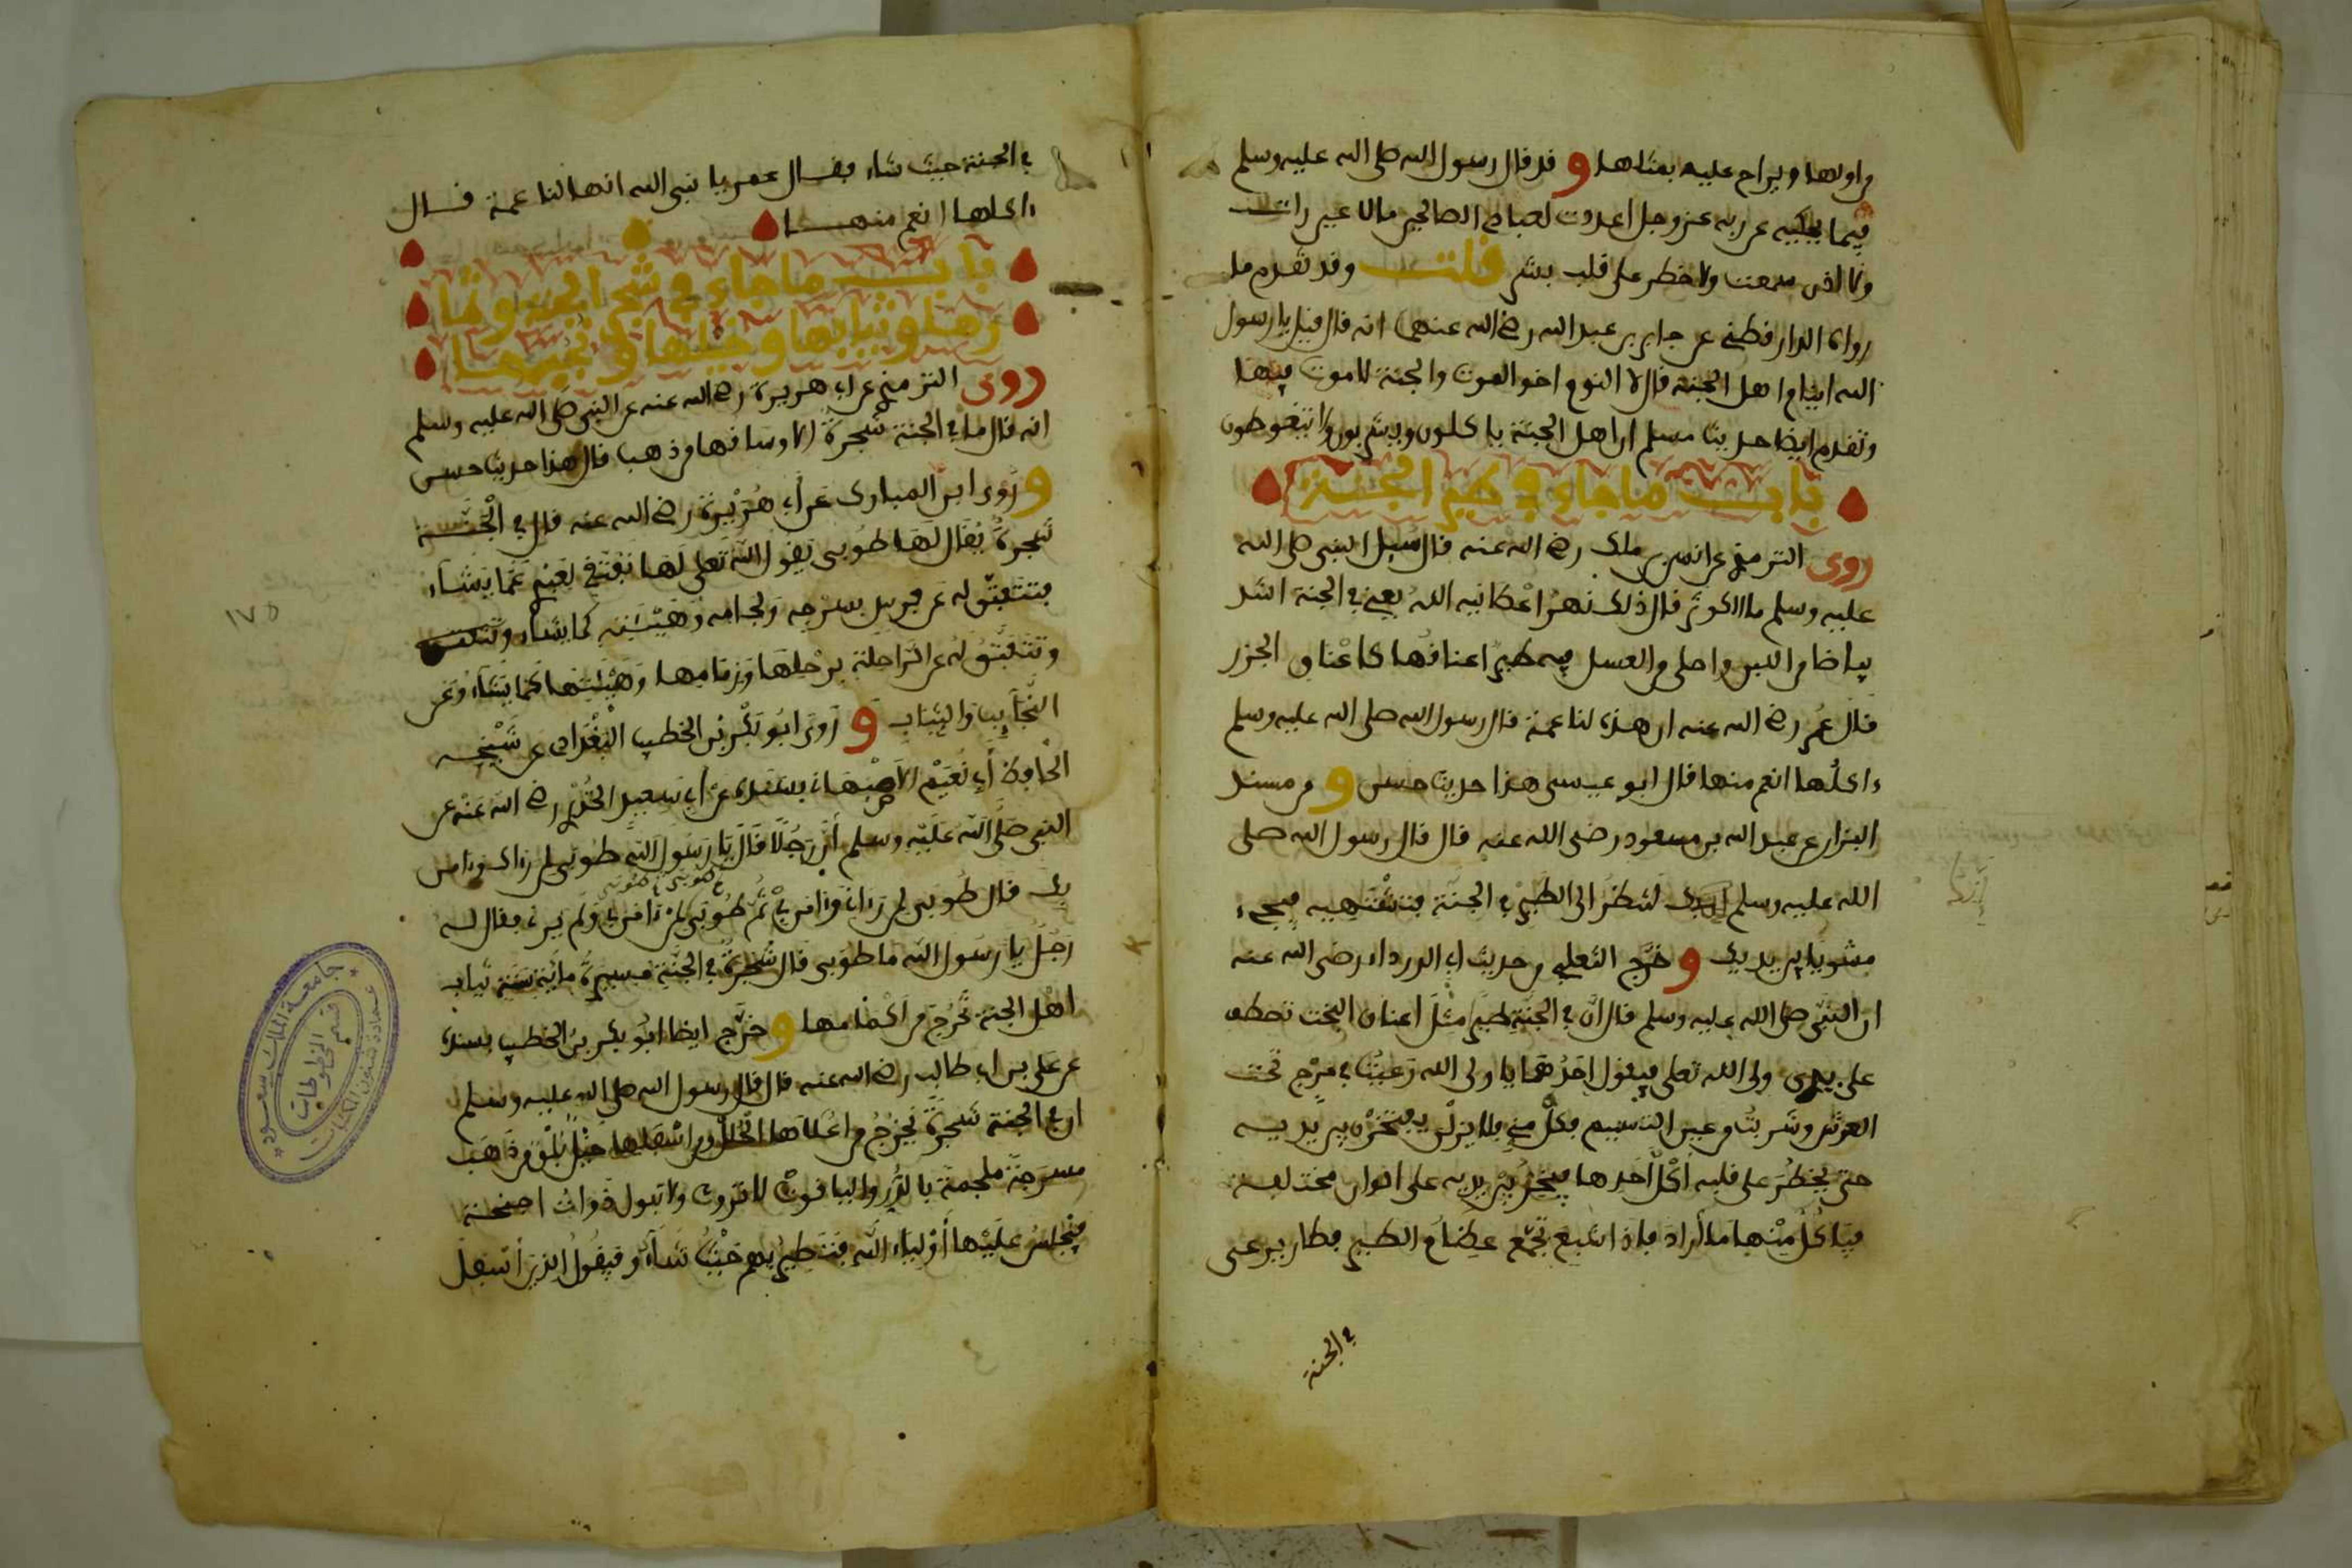 من اولها ويراح عليه بمثلها و قد قال رسول الله صلى الله عليه وسلم
فيما يحكيه عن ربه عز وجل اعددت لعبادي الصالحين ما لا عين رات
ولا اذن سمعت ولا خطر على قلب بشر قلت وقد تقدم ما
رواه الدارقطني عن جابر بن عبد الله رضي الله عنهما انه قال قيل يا رسول
الله اينام اهل الجنة قال لا النوم اخو الموت والجنة لا موت فيها
وتقدم ايضا حديث مسلم ان اهل الجنة ياكلون ويشربون ولا يتغوطون
باب ما جاء في طير الجنة
روى الترمذي عن انس بن ملك رضي الله عنه قال سئل النبي صلى الله
عليه وسلم ما الكوثر قال ذلك نهر اعطانيه الله يعني في الجنة اشد
بياضا من اللبن واحلى من العسل فيه طير اعناقها كاعناق الجزر
قال عمر رضي الله عنه ان هذه لناعمة قال رسول الله صلى الله عليه وسلم
ءاكلها انعم منها قال ابو عيسى هذا حديث حسن و من مسند
البزار عن عبد الله بن مسعود رضي الله عنه قال قال رسول الله صلى
الله عليه وسلم انك لتنظر الى الطير في الجنة فتشتهيه فيجيء
مشويا بين يديك و خرج الثعلبي من حديث ابي الدرداء رضي الله عنه
ان النبي صلى الله عليه وسلم قال ان في الجنة طيرا مثل اعناق البخت تصطف
على يدي ولي الله تعلى فيقول احدها يا ولي الله رعيت في مرج تحت
العرش وشربت من عين التسنيم فكل مني فلا يزلن يفتخرن بين يديه
حتى يخطر على قلبه اكل احدها فيخر بين يديه على الوان مختلفة
فياكل منها ما اراد فاذا شبع تجمع عظام الطير فطار يرعى
في الجنة
في الجنة حيث شاء فقال عمر يا نبي الله انها لناعمة قال
ءاكلها انعم منها
باب ما جاء في شجر الجنة وثما
رها وثيابها وخيلها و نجبها
روى الترمذي عن ابي هريرة رضي الله عنه عن النبي صلى الله عليه وسلم
انه قال ما في الجنة شجرة الا وساقها من ذهب قال هذا حديث حسن
و روى ابن المبارك عن ابي هريرة رضي الله عنه قال في الجنة
شجرة يقال لها طوبى يقول الله تعلى لها تفتقي لعبدي عما يشاء
فتتفتق له عن فرس بسرجه ولجامه وهيئته كما يشاء
وتتفتق له عن الراحلة برحلها وزمامها وهيئتها كما يشاء وعن
النجايب والثياب و روى ابو بكر بن الخطيب البغدادي عن شيخه
الحافظ ابي نعيم الاصبهاني بسنده عن ابي سعيد الخدري رضي الله عنه عن
النبي صلى الله عليه وسلم ان رجلا قال يا رسول الله طوبى لمن رءاك وءامن
بك قال طوبى لمن رءاني وءامن بي ثم طوبى لمن ءامن بي ولم يرني فقال له
رجل يا رسول الله ما طوبى قال شجرة في الجنة مسيرة ماية سنة ثياب
اهل الجنة تخرج من اكمامها و خرج ايضا ابو بكر بن الخطيب بسنده
عن علي بن ابي طالب رضي الله عنه قال قال رسول الله صلى الله عليه وسلم
ان في الجنة شجرة يخرج من اعلاها الحلل ومن اسفلها خيل بلق من ذهب
مسرجة ملجمة بالدر والياقوت لا تروث ولا تبول ذوات اجنحة
فيجلس عليها اولياء الله فتطير بهم حيث شاءوا فيقول الذين اسفل
١٧٥
جامعة الملك سعود
عمادة شئون المكتبات
قسم المخطوطات